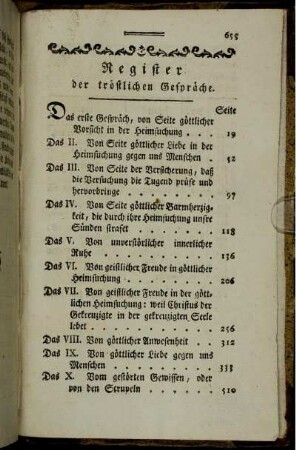 655
Register
der tröstlichen Gespräche.
Seite
Das erste Gespräch, von Seite göttlicher
Vorsicht in der Heimsuchung . . . 19
Das II. Von Seite göttlicher Liebe in der
Heimsuchung gegen uns Menschen . 52
Das III. Von Seite der Versicherung, daß
die Versuchung die Tugend prüfe und
hervorbringe . . . . 97
Das IV. Von Seite göttlicher Barmherzig-
keit, die durch ihre Heimsuchung unsre
Sünden strafet . . . . 118
Das V. Von unverstörlicher innerlicher
Ruhe . . . . . 136
Das VI. Von geistlicher Freude in göttlicher
Heimsuchung . . . . 206
Das VII. Von geistlicher Freude in der gött-
lichen Heimsuchung: weil Christus der
Gekreuzigte in der gekreuzigten Seele
lebet . . . . . 256
Das VIII. Von göttlicher Anwesenheit . . 312
Das IX. Von göttlicher Liebe gegen uns
Menschen . . . . . 333
Das X. Vom gestörten Gewissen, oder
von den Scrupeln . . . . 510